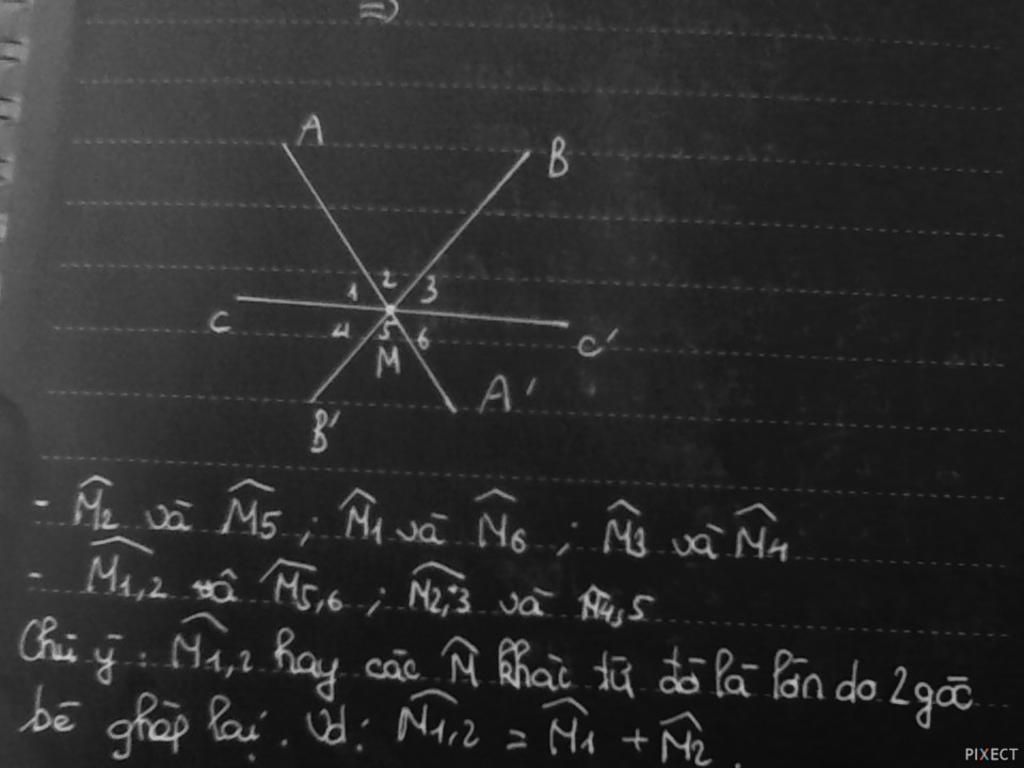 =>
A
B
1 2 3
C
4 5 6
C'
M
A'
B'
- M̂2 và M̂5 ; M̂1 và M̂6 ; M̂3 và M̂4
- M̂1,2 và M̂5,6 ; M̂2,3 và M̂4,5
Chú ý : M̂1,2 hay các M̂ khác từ đó là lớn do 2 góc
bé ghép lại. Vd: M̂1,2 = M̂1 + M̂2.
PIXECT